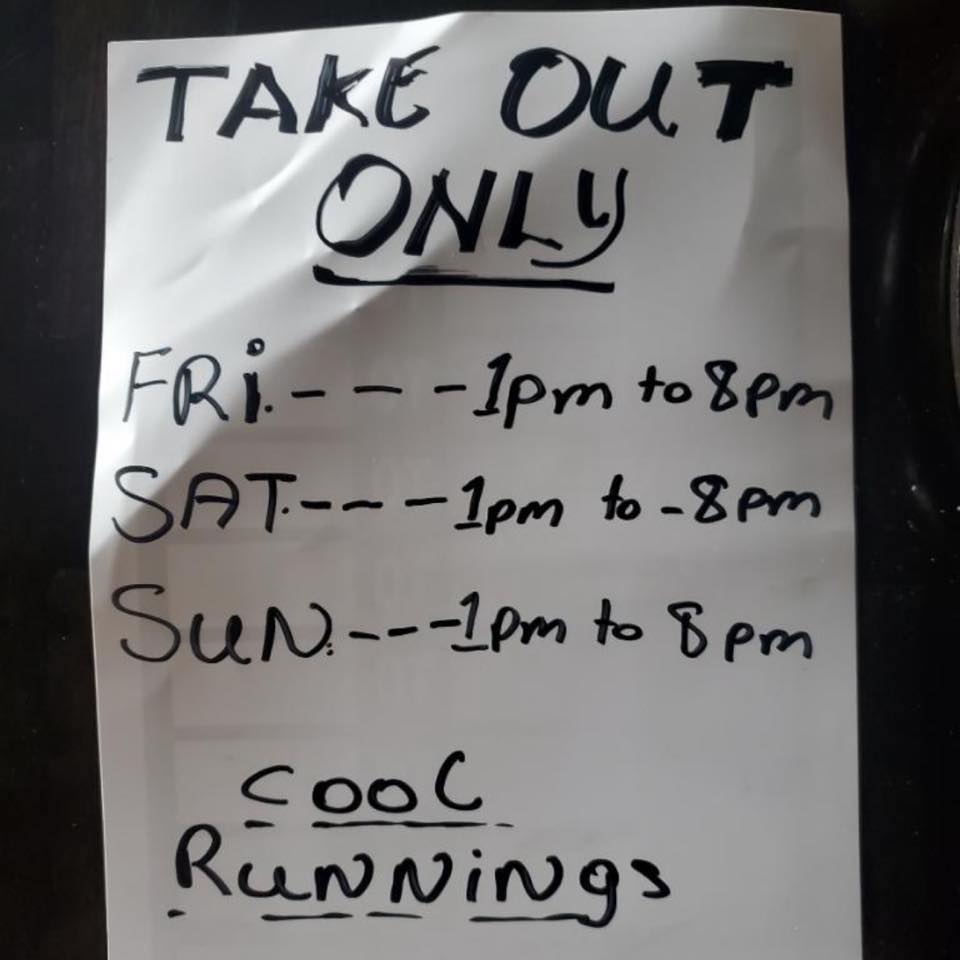 TAKE OUT
ONLY
FRi. - - - 1pm to 8pm
SAT. - - - 1pm to - 8pm
SUN. - - - 1pm to 8pm
COOL
RUNNiNgs